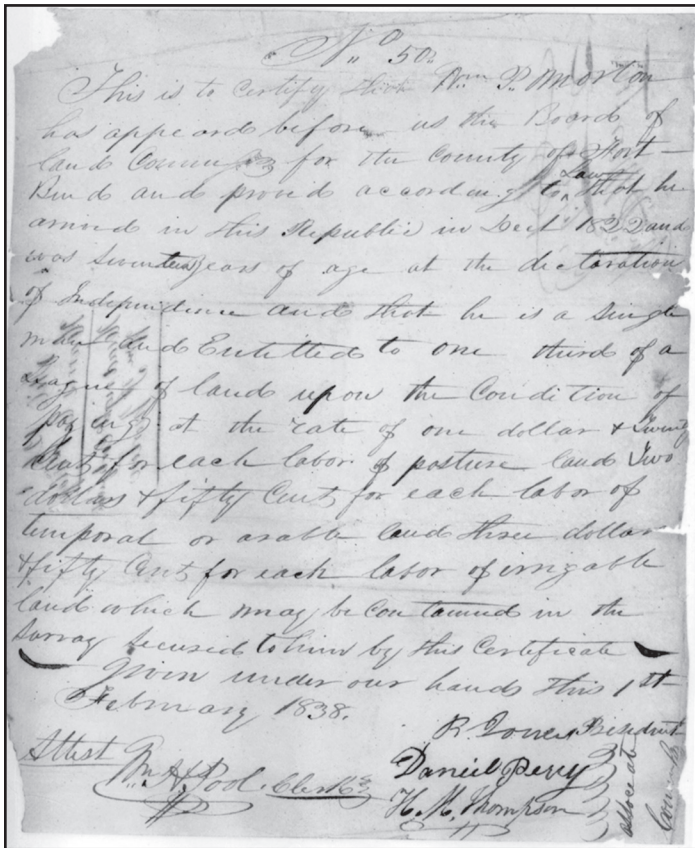 No 50.
This is to certify that Wm P. Morton
has appeard before us the Board of
land Commrs for the County of Fort-
Bend and provd according to Law that he
arrived in this Republic in Dect 1822 and
was Seventeen years of age at the declaration
of Independence and that he is a Single
man and Entittled to one third of a
League of land upon the Condition of
paying at the rate of one dollar & Twenty
Cents for each labor of pasture land Two
dollars & fifty Cents for each labor of
temporal or arable land three dollar
& fifty Cents for each labor of irrigable
land which may be contained in the
Survay Secured to him by this Certificate
Given under our hands This 1st
February 1838.
R. Jones President
Attest
Wm H. Pool. Clerk
Daniel Perry
H. M. Thompson
associate